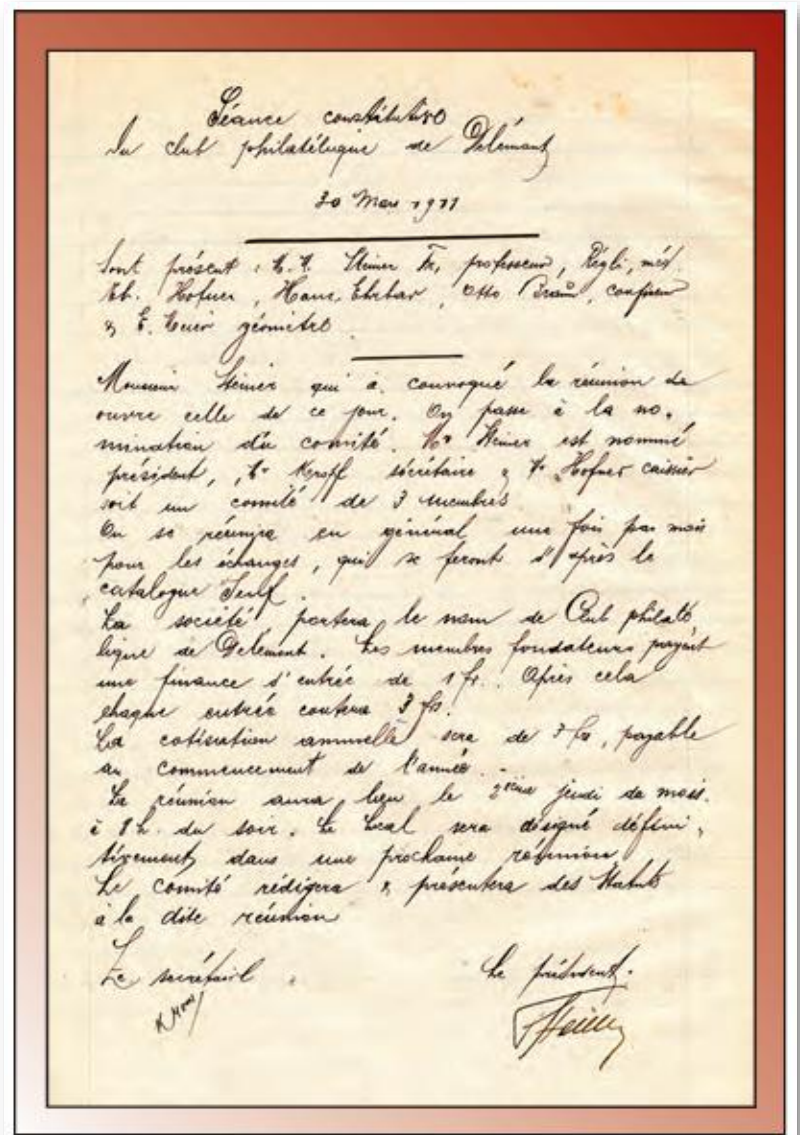 Séance constitutive
du club philatélique de Delémont
30 Mars 1911
Sont présent : M.M. Steiner Fr, professeur, Régli, méd.
Eb. Hofner, Hans Ehrbar, Otto Braun, confiseur
& E. géomètre.
Monsieur Steiner qui a convoqué la réunion
ouvre celle de ce jour. On passe à la no-
mination du comité. Mr Steiner est nommé
président, Mr sécrétaire & Mr Hofner caissier
soit un comité de 3 membres
On se réunira en général une fois par mois
pour les échanges, qui se feront d'après le
catalogue Senf.
La société portera le nom de Club philaté
lique de Delémont. Les membres fondateurs payent
une finance d'entrée de 1 fr. Après cela
chaque entrée coutera 3 frs.
La cotisation annuelle sera de 3 frs, payable
au commencement de l'année.
La réunion aura lieu le 2ème jeudi du mois.
à 8 h. du soir. Le local sera désigné défini-
tivement dans une prochaine réunion.
Le comité rédigera & présentera des Statuts
à la dite réunion
Le secrétaire
Le président.